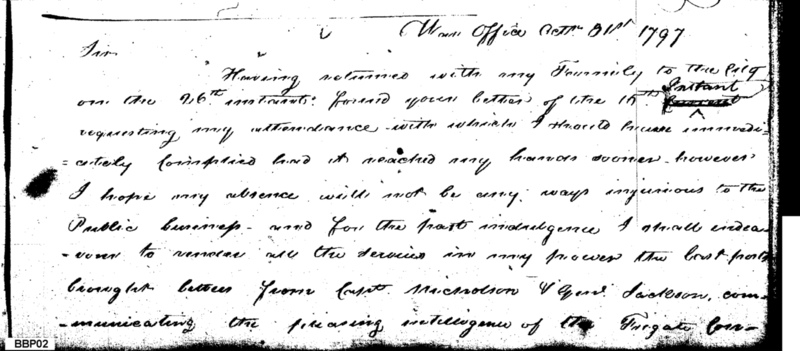 War Office Octr 31st 1797
Sir
Having returned with my Family to the City
on the 26th instant. found your letter of the 16th Instant
requesting my attendance - with which I should have immedi-
-ately Complied had it reached my hands sooner - however
I hope my absence will not be any ways injurious to the
Public business - and for the past indulgence I shall endea
-vour to render all the Service in my power the last post
brought letters from Capt Nicholson & Genl. Jackson, com-
-municating the pleasing intelligence of the Frigate Con-
BBP02